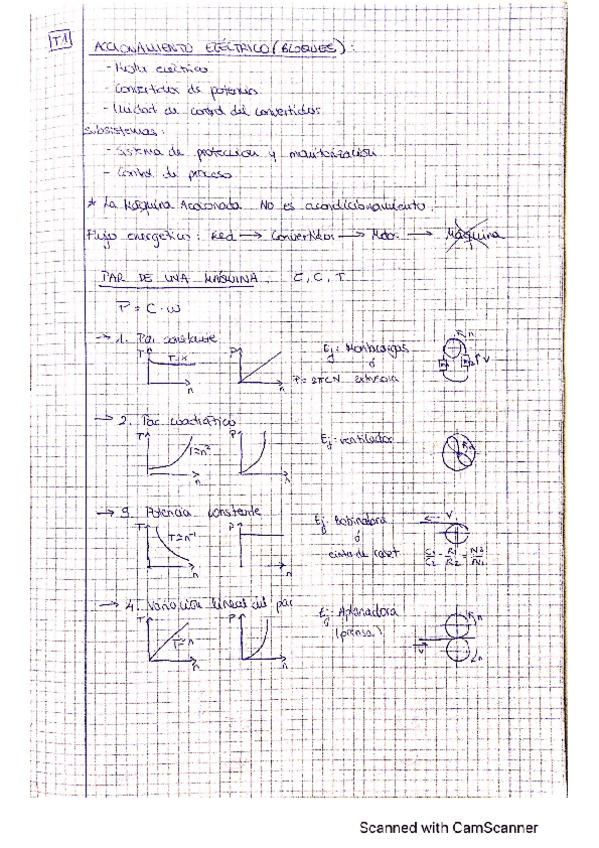 T1
ACCIONAMIENTO ELÉCTRICO (BLOQUES):
- Motor eléctrico
- Convertidor de potencia
- Unidad de control del convertidor
subsistemas:
- Sistema de protección y monitorización
- Control de proceso
* La Máquina Accionada No es acondicionamiento.
Flujo energético: Red → Convertidor → Motor → Máquina
PAR DE UNA MÁQUINA. C, T
P = C · ω
→ 1. Par constante
T P
T=K
n n
Ej: Montacargas
ó
n
v
→ 2. Par cuadrático
T P
n n
Ej: ventilador
→ 3. Potencia constante
T P
T≈n⁻¹
n n
Ej: Bobinadora
ó
v
→ 4. Variación lineal del par
T P
T≈n
n n
Ej: Aplanadora
(prensa)
n
v n
Scanned with CamScanner